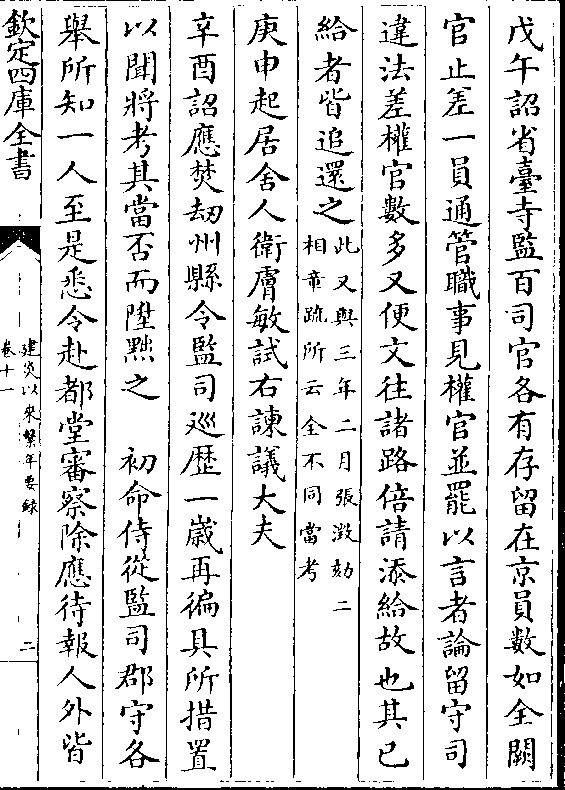 戊午詔省臺寺監百司官各有存留在京員數如全闕
官止差一員通管職事見權官並罷以言者論留守司
違法差權官數多又便文往諸路倍請添給故也其已
給者皆追還之此又與三年二月張澂劾二
相章疏所云全不同當考
庚申起居舍人衛膚敏試右諫議大夫
辛酉詔應焚刼州縣令監司巡歴一歲再徧具所措置
以聞將考其當否而陞黜之　初命侍從監司郡守各
舉所知一人至是悉令赴都堂審察除應待報人外皆
欽定四庫全書
建炎以來繫年要録
卷十一
二